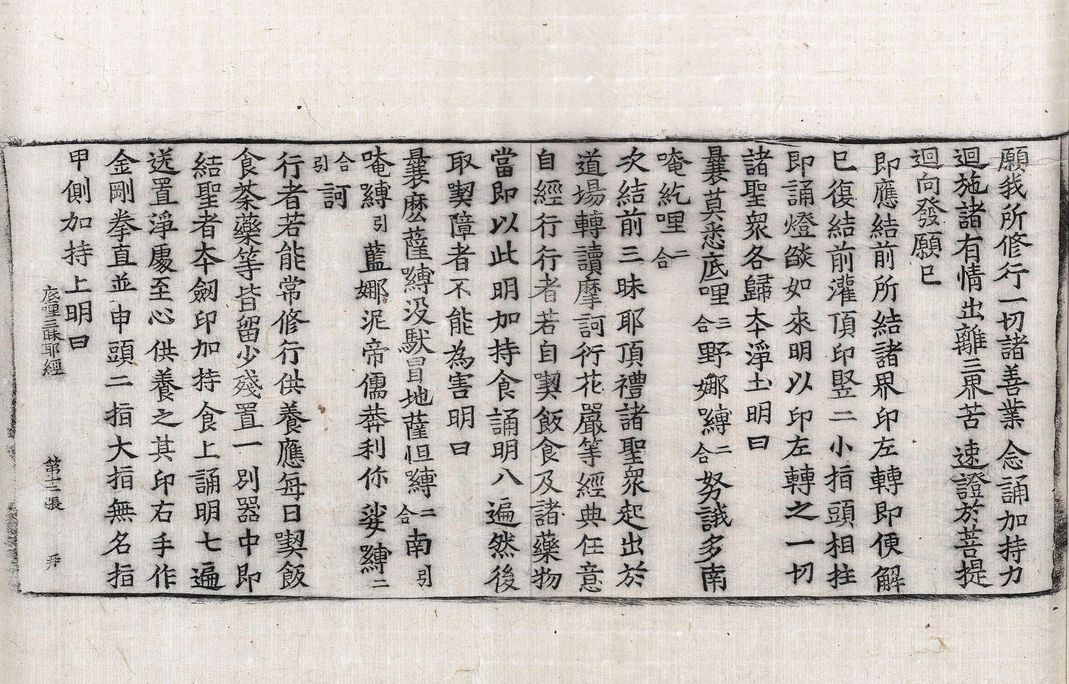 願我所修行一切諸善業 念誦加持力
迴施諸有情出離三界苦 速證於菩提
迴向發願已
即應結前所結諸界印左轉即便解
已復結前灌頂印竪二小指頭相拄
即誦燈燄如來明以印左轉之一切
諸聖衆各歸夲淨土明曰
曩莫悉底哩三合野娜嚩二合努誐多南
唵紇哩二合
次結前三昧耶頂禮諸聖衆起出於
道場轉讀摩訶衍花嚴等經典任意
自經行行者若自喫飯食及諸藥物
當即以此明加持食誦明八遍然後
取喫障者不能為害明曰
曩麽薩嚩没馱冒地薩怛嚩二合南引
唵嚩引藍娜泥帝儒莾利你娑嚩二
合引訶
行者若能常修行供養應每日喫飯
食茶藥等皆留少殘置一別器中即
結聖者夲劒印加持食上誦明七遍
送置淨處至心供養之其印右手作
金剛拳直並申頭二指大指無名指
甲側加持上明曰
底哩三昧耶經 第十二張 尹